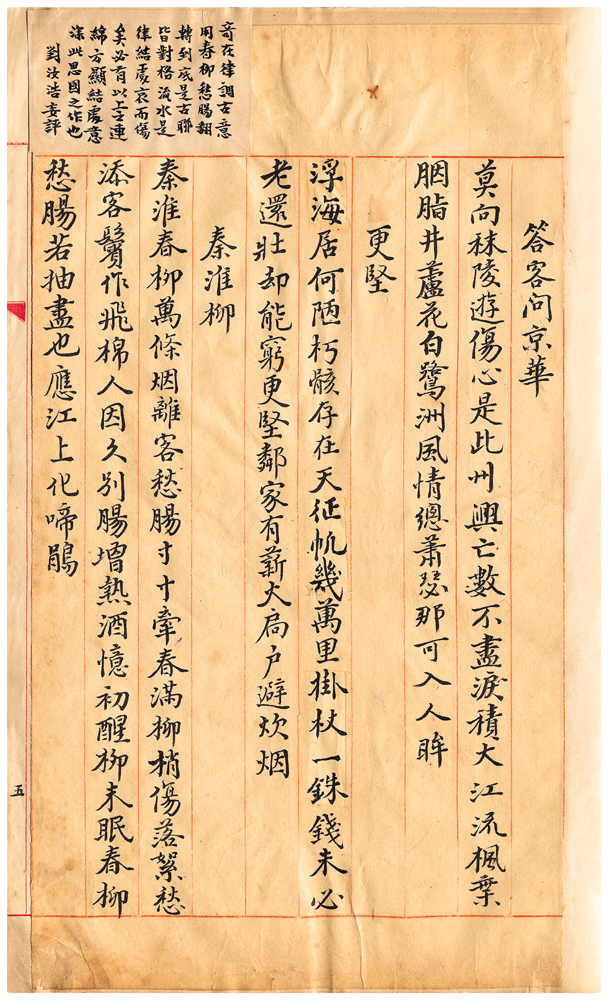 答客問京華
莫向秣陵遊傷心是此州興亡數不盡淚積大江流楓葉
胭脂井蘆花白鷺洲風情總蕭瑟那可入人眸
更堅
浮海居何陋朽骸存在天征帆幾萬里掛杖一銖錢未必
老還壯却能窮更堅鄰家有薪火扃户避炊烟
秦淮柳
秦淮春柳萬條烟離客愁腸寸寸牽春滿柳梢傷落絮愁
添客鬢作飛棉人因久別腸增熱酒憶初醒柳未眠春柳
愁腸若抽盡也應江上化啼鵑
奇在律調古意
用春柳愁腸翻
轉到底是古聯
皆對格流水是
律結處哀而傷
矣必有以上之連
綿方顯結處意
深此思國之作也
劉汝浩妄評
五